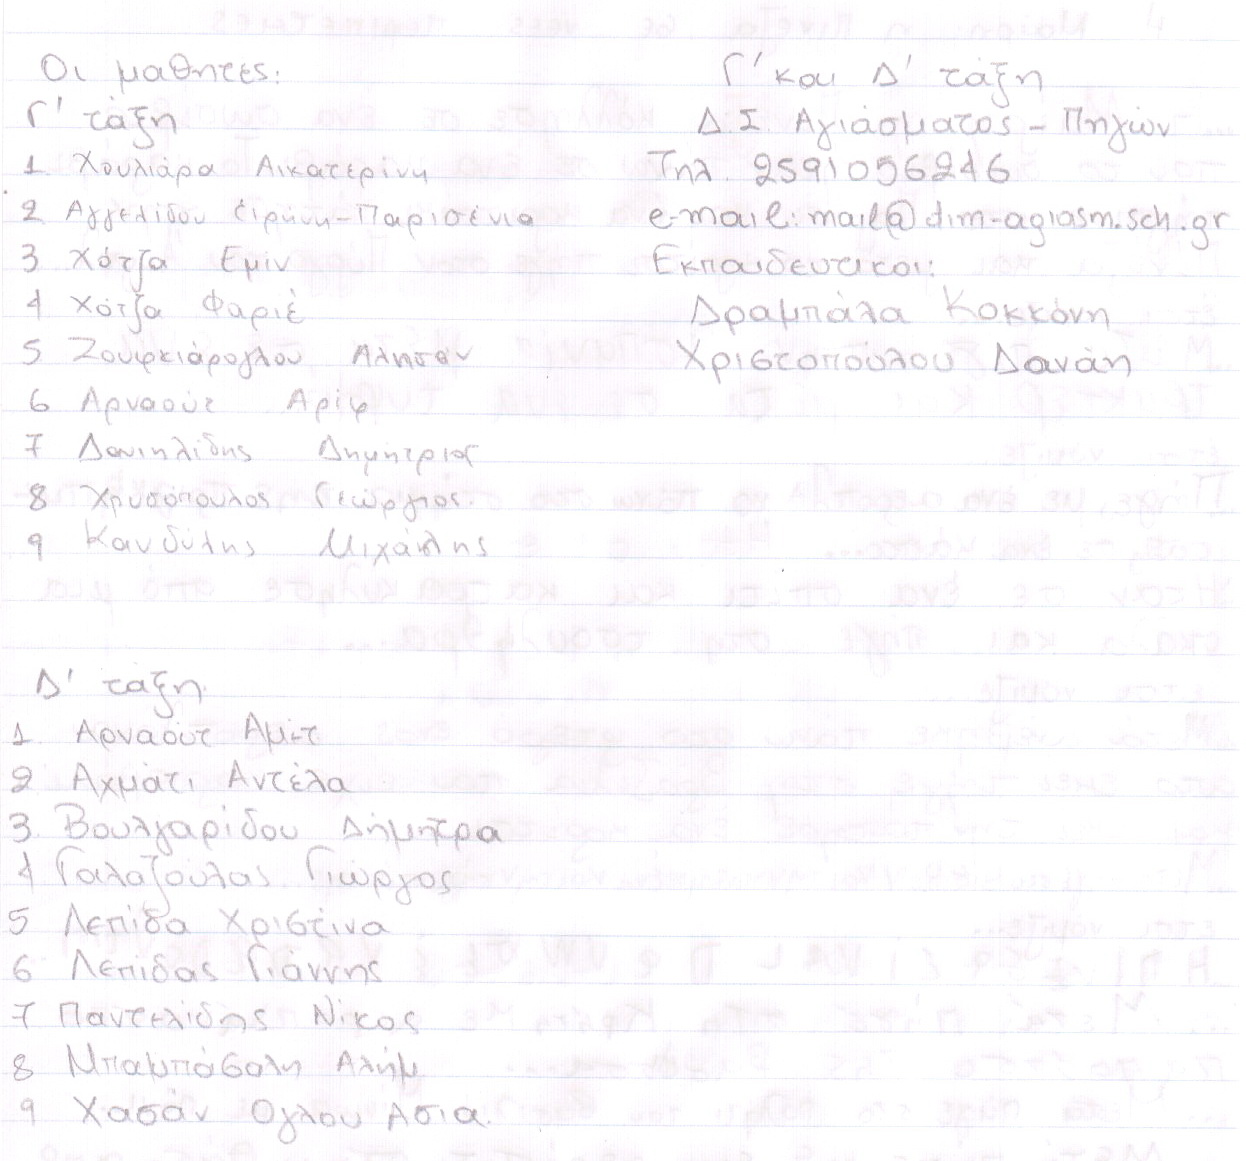 Οι μαθητές:
Γ' τάξη
1 Χουλιάρα Αικατερίνη
2 Αγγελίδου Ειρήνη-Παρισένια
3 Χότζα Εμίν
4 Χότζα Φαριέ
5 Ζουρκιάρογλου
6 Αρναούτ Αρίφ
7 Δανιηλίδης Δημήτριος
8 Χρυσόπουλος Γεώργιος.
9 Κανδύλης Μιχάηλης
Γ' και Δ' τάξη
Δ.Σ. Αγιάσματος - Πηγών
Τηλ. 2591056246
e-mail: mail@dim-agiasm.sch.gr
Εκπαιδευτικοι:
Δραμπάλα Κοκκόνη
Χριστοπούλου Δανάη
Δ' τάξη
1. Αρναούτ Αμέτ
2 Αχμάτι Αντέλα
3. Βουλγαρίδου Δήμητρα
4 Γαλαζούλας Γιώργος
5 Λεπίδα Χριστίνα
6 Λεπίδας Γιάννης
7 Παντελίδης Νίκος
8 Μπαμπάσαλη Αλήμ
9 Χασάν Ογλου Ασια.